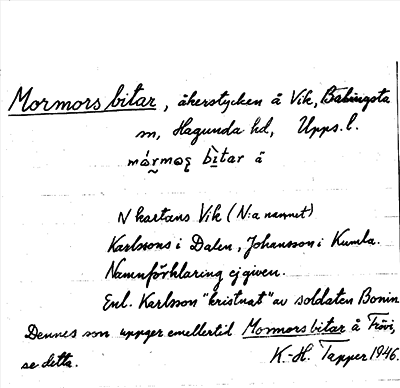 Mormors bitar, åkerstycken å Vik, Balingsta
sn, Hagunda hd, Upps. l.
bìtar ä
N kartans Vik (N:a namnet)
Karlssons i Dalen, Johansson i Kumla.
Namnförklaring ej given.
Enl. Karlsson "kristnat" av soldaten Bonin
Dennes son uppger emellertid Mormorsbitar å Frövi,
se detta. K.-H. Tapper 1946.